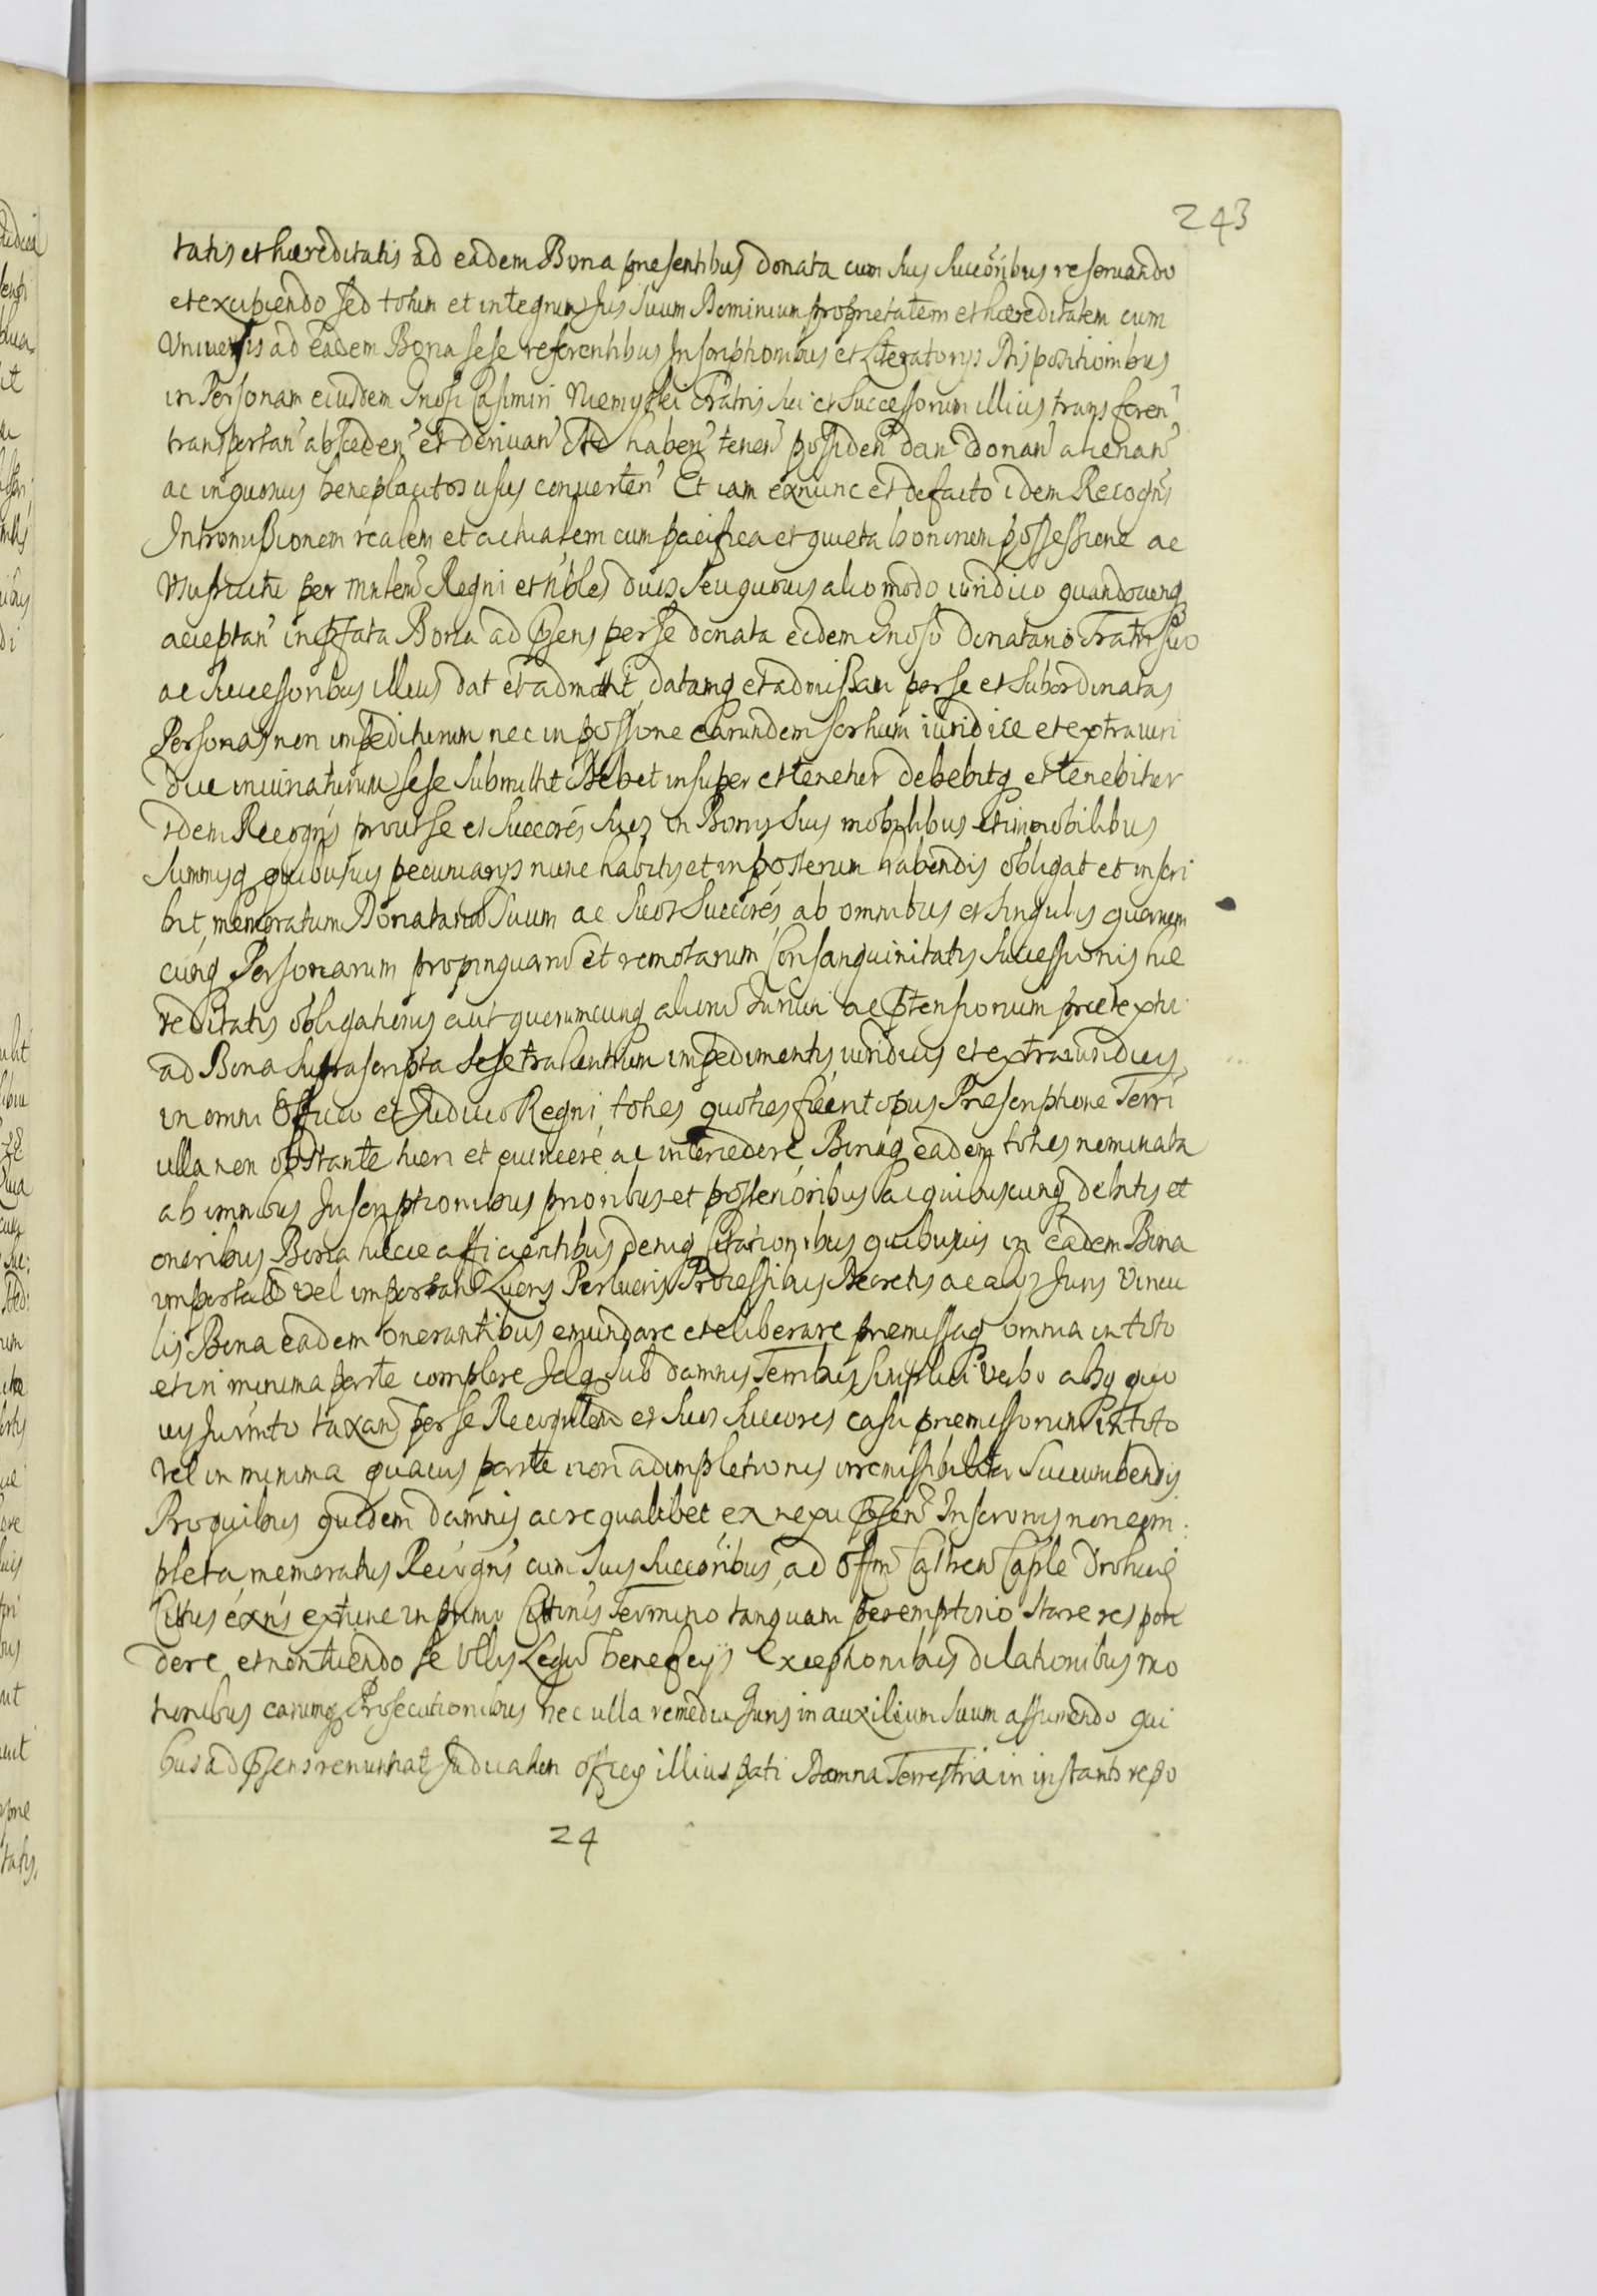 243
tatis et hæreditatis ad eadem Bona presentibus donata cum suis succõribus reseruando
et excipiendo sed totum et integrum Jus suum Dominium proprietatem et hæreditatem cum
Vniuersis ad eadem Bona sese referentibus Inscriptionibus et Literatorys Dispositionibus
in Personam eiusdem Gnosi Casimiri Niemyski Fratris sui et Successorum illius transferen
transportan absceden et deriuan Ad haben tenen possiden dan donan alienan
ac in quosuis beneplacitos usus conuerten Et iam exnunc et defacto idem Recogns
Intromissionem realem et actualem cum pacifica et quieta bonorum possessione ac
Vsufructu per mnlem Regni et nbles duos seu quouis alio modo iuridico quandocunq
acceptan in pfata Bona ad psens per se donata eidem Gnoso Donatario Fratri suo
ac Successoribus illius dat et admittit, datamq et admissam per se et subordinatas
Personas non impediturum nec in possione earundem sortium iuridice et extraiuri
dice inuinaturum sese submittit Debet insuper et tenetur debebitq et tenebitur
idem Recogns prout se et succorés suos in Bonis suis mobilibus et immobilibus
summisq quibusuis pecuniarys nunc habitis et in posterum habendis obligat et inscri
bit, memoratum Donatariũ suum ac suos Succorés, ab omnibus et singulis quarum
cunq Personarum propinquarũ et remotarum Consanguinitatis Successionis hæ
reditatis obligationis aut quorumcunq aliorũ Jurium ac ptensionum prætextu
ad Bona suprascripta sese trahentium impedimentis, iuridicis et extraiuridicis,
in omni Officio et Judicio Regni, toties quoties fuerit opus Prescriptione Terri
ulla non obstante tueri et euincere ac intercedere, Bonaq eadem toties nominata
ab omnibus Inscriptionibus prioribus et posterioribus ac quibuscunq debitis et
oneribus Bona hæcce afficientibus deniq Citationibus quibusuis in eadem Bona
importatis vel importand Lucris Perlucris Processibus Decretis ac alys Juris Vincu
lis Bona eadem onerantibus emundare et eliberare premissaq omnia in toto
et in minima parte complere Idq sub damnis Terribus simplici verbo absq quo
uis Jurmto taxand per se Recognten et suos succores casu premissorum in toto
vel in minima quauis parte non adimpletionis irremissibiliter succumbendis
Pro quibus quidem damnis ac re qualibet ex nexu psen Inscronis non com
pleta, memoratus Recogns cum suis succoribus, ad Offm Castren Caple Drohicien
Citus exns extunc in primo Cittinis Termino tanquam peremptorio stare respon
dere et non tuendo se ullis Legũ beneficys Exceptionibus dilationibus mo
tionibus earumq Prosecutionibus nec ulla remedia Juris in auxilium suum assumendo qui
bus ad psens renuntiat Judicatum officy illius pati Damna Terrestria in instanti repo
24